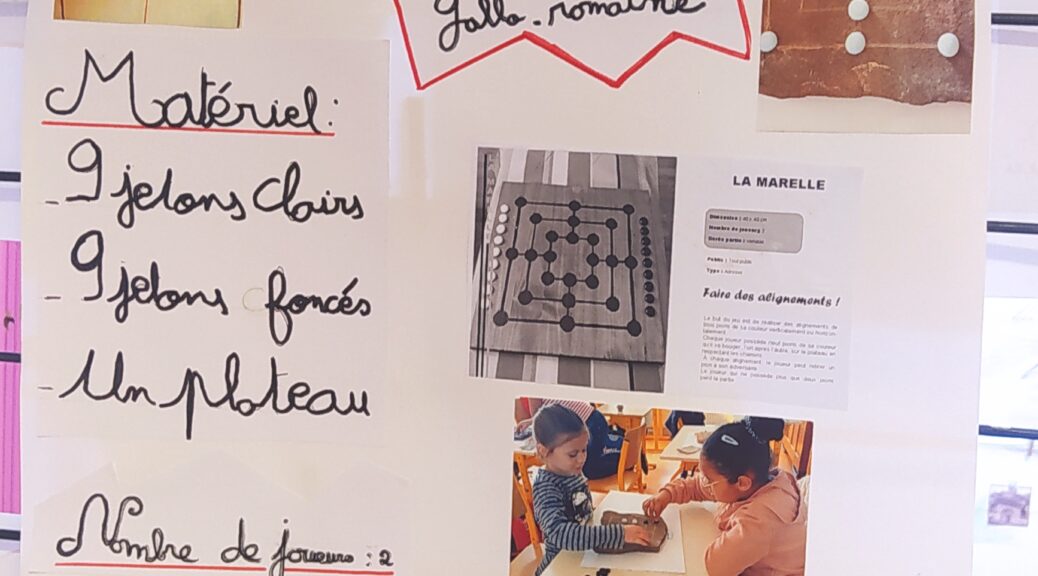 Gallo-romaine
Matériel:
- 9 jetons clairs
- 9 jetons foncés
- Un plateau
Nombre de joueurs : 2
LA MARELLE
Dimension : 40 x 40 cm
Nombre de joueurs : 2
Durée partie : variable
Public : Tout public
Type : Adresse
Faire des alignements !
Le but du jeu est de réaliser des alignements de
trois pions de sa couleur verticalement ou horizon-
talement.
Chaque joueur possède neuf pions de sa couleur
qu'il va bouger, l'un après l'autre, sur le plateau en
respectant les chemins.
A chaque alignement, le joueur peut retirer un
pion à son adversaire.
Le joueur qui ne possède plus que deux pions
perd la partie.